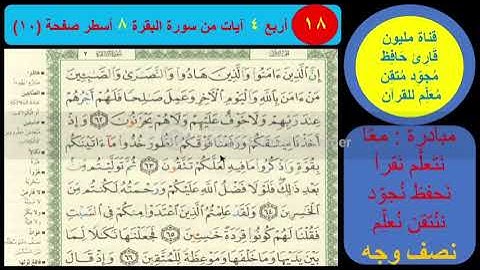 ١٨
أربع ٤ آيات من سورة البقرة ٨ أسطر صفحة (١٠)
قناة مليون
قارئ حافظ
مُجوّد مُتقن
مُعلّم للقرآن
مبادرة : معًا
نتعلّم نقرأ
نحفظ نُجوّد
نُتقن نُعلّم
نصف وجه
إِنَّ ٱلَّذِينَ ءَامَنُوا۟ وَٱلَّذِينَ هَادُوا۟ وَٱلنَّصَٰرَىٰ وَٱلصَّٰبِـِٔينَ
مَنْ ءَامَنَ بِٱللَّهِ وَٱلْيَوْمِ ٱلْءَاخِرِ وَعَمِلَ صَٰلِحًا فَلَهُمْ أَجْرُهُمْ
عِندَ رَبِّهِمْ وَلَا خَوْفٌ عَلَيْهِمْ وَلَا هُمْ يَحْزَنُونَ ٦٢ وَإِذْ
أَخَذْنَا مِيثَٰقَكُمْ وَرَفَعْنَا فَوْقَكُمُ ٱلطُّورَ خُذُوا۟ مَآ ءَاتَيْنَٰكُم
بِقُوَّةٍ وَٱذْكُرُوا۟ مَا فِيهِ لَعَلَّكُمْ تَتَّقُونَ ٦٣ ثُمَّ تَوَلَّيْتُم مِّنۢ
بَعْدِ ذَٰلِكَ فَلَوْلَا فَضْلُ ٱللَّهِ عَلَيْكُمْ وَرَحْمَتُهُۥ لَكُنتُم مِّنَ
ٱلْخَٰسِرِينَ ٦٤ وَلَقَدْ عَلِمْتُمُ ٱلَّذِينَ ٱعْتَدَوْا۟ مِنكُمْ فِى ٱلسَّبْتِ
فَقُلْنَا لَهُمْ كُونُوا۟ قِرَدَةً خَٰسِـِٔينَ ٦٥ فَجَعَلْنَٰهَا نَكَٰلًا لِّمَا
بَيْنَ يَدَيْهَا وَمَا خَلْفَهَا وَمَوْعِظَةً لِّلْمُتَّقِينَ ٦٦ وَإِذْ قَالَ